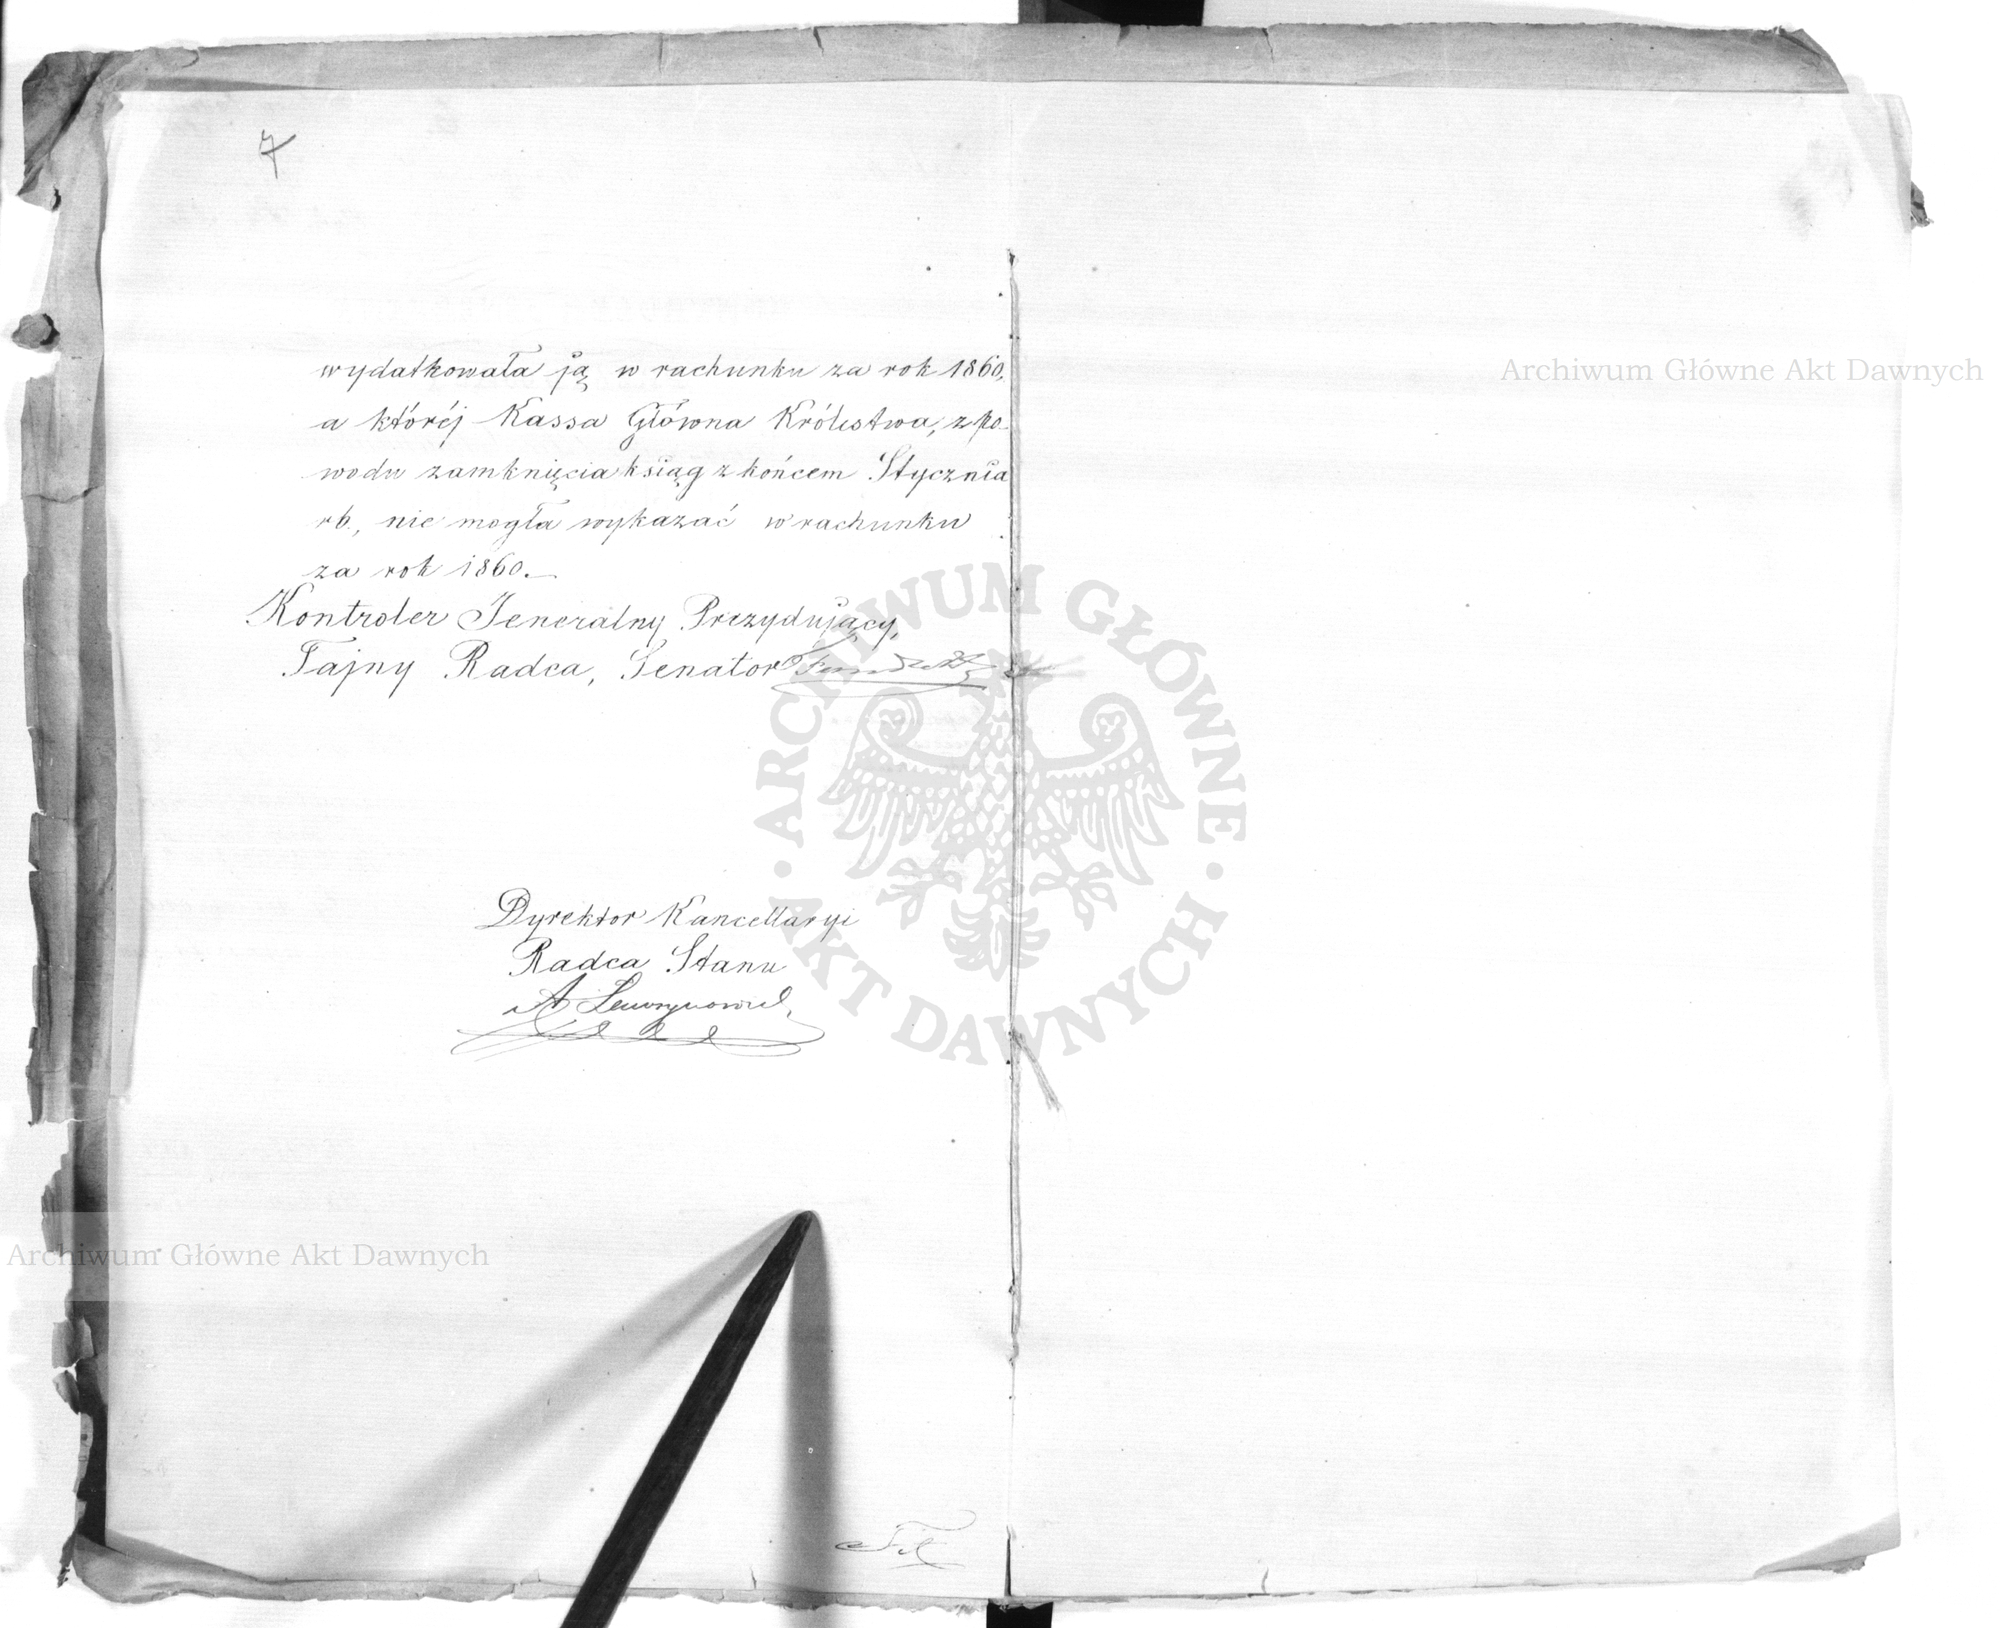 7
wydatkowała ją w rachunku za rok 1860,
a któréj Kassa Główna Królestwa, z po-
wodu zamknięcia ksiąg z końcem Stycznia
rb., nie mogła wykazać w rachunku
za rok 1860.
Kontroler Jeneralny Prezydujący,
Tajny Radca, Senator
Dyrektor Kancellaryi
Radca Stanu
A
Archiwum Główne Akt Dawnych
Archiwum Główne Akt Dawnych
ARCHIWUM GŁÓWNE · AKT DAWNYCH ·